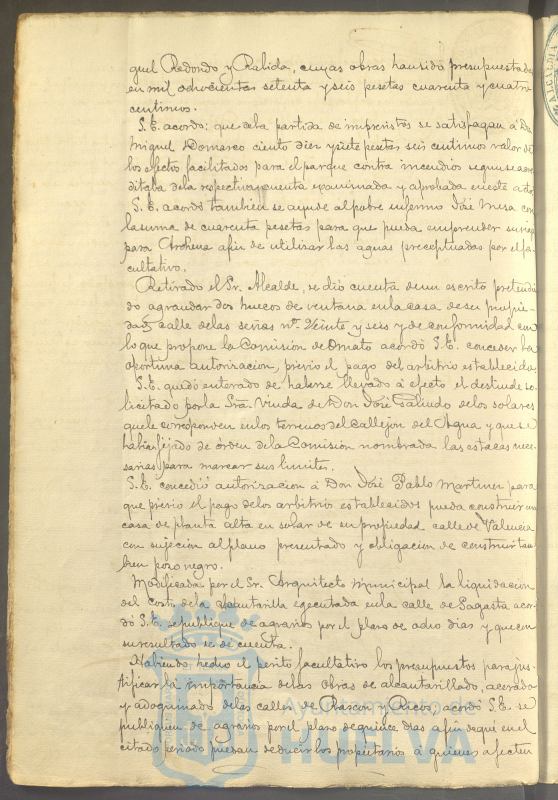 guel Redondo y Rabida, cuyas obras han sido presupuestadas
en mil ochocientas setenta y seis pesetas cuarenta y cuatro
centimos.
S.E. acordó: que de la partida de imprevistos se satisfagan á Dn
Miguel Domarco ciento diez y siete pesetas seis centimos valor de
los efectos facilitados para el parque contra incendios segun se acre
ditaba de la respectiva cuenta examinada y aprobada en este acto.
S.E. acordó tambien se ayude al pobre enfermo José Mesa con
la suma de cuarenta pesetas para que pueda emprender su viaje
para Archena afin de utilizar las aguas preceptuadas por el fa
cultativo.
Retirado el Sr. Alcalde, se dió cuenta de un escrito pretendien
do agrandar dos huecos de ventana en la casa de su propie
dad calle de las señas nº. Veinte y seis y de conformidad con
lo que propone la Comision de Ornato acordó S.E. conceder la
oportuna autorizacion, previo el pago del arbitrio establecido.
S.E. quedó enterado de haberse llevado á efecto el deslinde so
licitado por la Sra. Viuda de Don José Galindo de los solares
que le corresponden en los terrenos del Callejon del Agua y que se
habian fijado de órden de la Comision nombrada las estacas nece
sarias para marcar sus limites.
S.E. concedió autorizacion á Don José Pablo Martinez para
que previo el pago de los arbitrios establecidos pueda construir una
casa de planta alta en solar de su propiedad calle de Valencia
con sujecion al plano presentado y obligacion de construir tam
bien pozo negro.
Modificada por el Sr. Arquitecto municipal la liquidacion
del costo de la alcantarilla egecutada en la calle de Sagasta acor
dó S.E. se publique de agravios por el plazo de ocho dias y que con
su resultado se dé cuenta.
Habiendo hecho el perito facultativo los presupuestos para jus
tificar la importancia de las obras de alcantarillado, acerado
y adoquinado de las calles de Rascon y Ricos, acordó S.E. se
publiquen de agravios por el plazo de quince dias afin de que en el
citado periodo puedan deducir los propietarios á quienes afecten
Ayuntamiento de
HUELVA